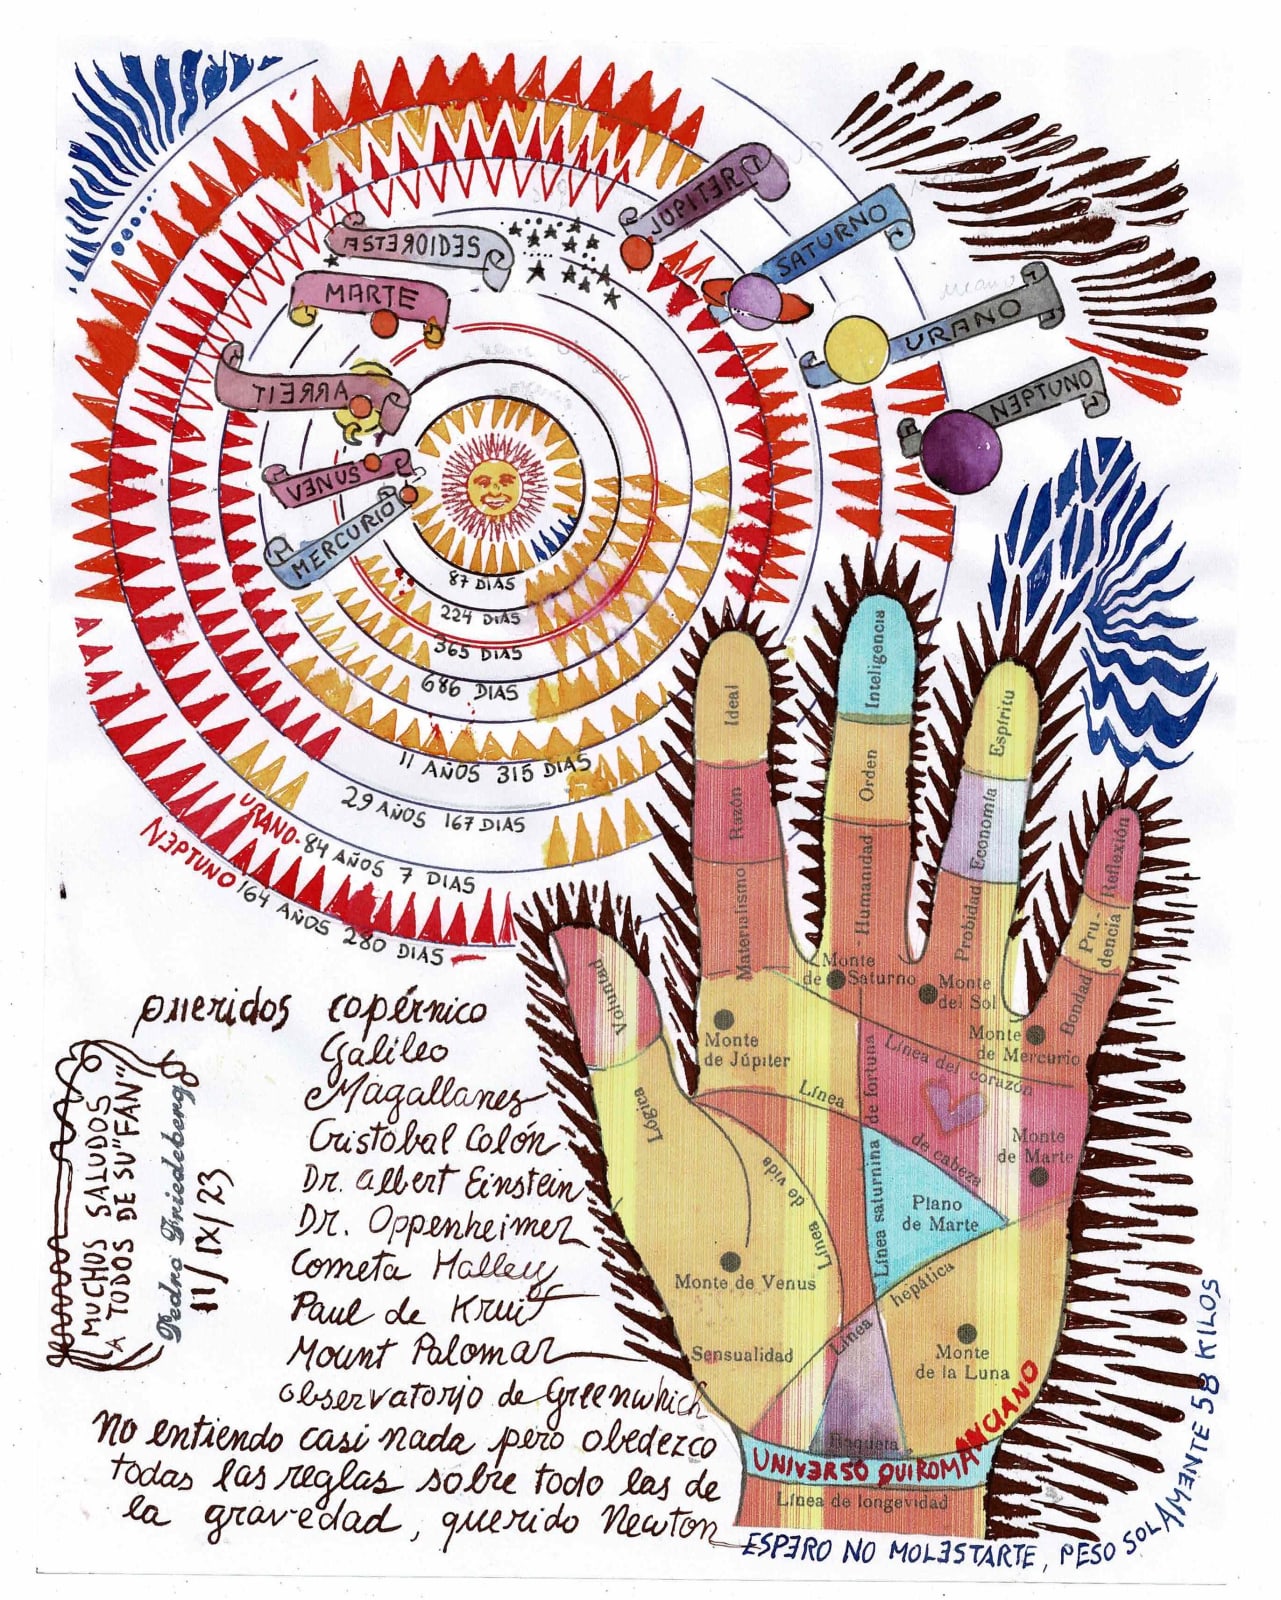 JUPITER
SATURNO
URANO
NEPTUNO
ASTEROIDES
MARTE
TIERRA
VENUS
MERCURIO
87 DIAS
224 DIAS
365 DIAS
686 DIAS
11 AÑOS 315 DIAS
29 AÑOS 167 DIAS
URANO-84 AÑOS 7 DIAS
NEPTUNO 164 AÑOS 280 DIAS
Ideal
Razón
Materialismo
Inteligencia
Orden
Humanidad
Espíritu
Economía
Probidad
Reflexión
Pru-
dencia
Bondad
Voluntad
Lógica
Monte
de Saturno
Monte
del Sol
Monte
de Mercurio
Monte
de Júpiter
Línea del corazón
Línea de cabeza
Línea de fortuna
Línea saturnina
Línea de vida
Monte
de Marte
Plano
de Marte
Línea hepática
Monte de Venus
Sensualidad
Monte
de la Luna
Raqueta
UNIVERSO QUIROMANCIANO
Línea de longevidad
queridos copérnico
Galileo
Magallanes
Cristóbal Colón
Dr. Albert Einstein
DR. Oppenheimer
Cometa Halley
Paul de Kruif
Mount Palomar
observatorio de Greenwhich
No entiendo casi nada pero obedezco
todas las reglas sobre todo las de
la gravedad, querido Newton
ESPERO NO MOLESTARTE, PESO SOLAMENTE 58 KILOS
MUCHOS SALUDOS
A TODOS DE SU "FAN"
Pedro Friedeberg
11/IX/23